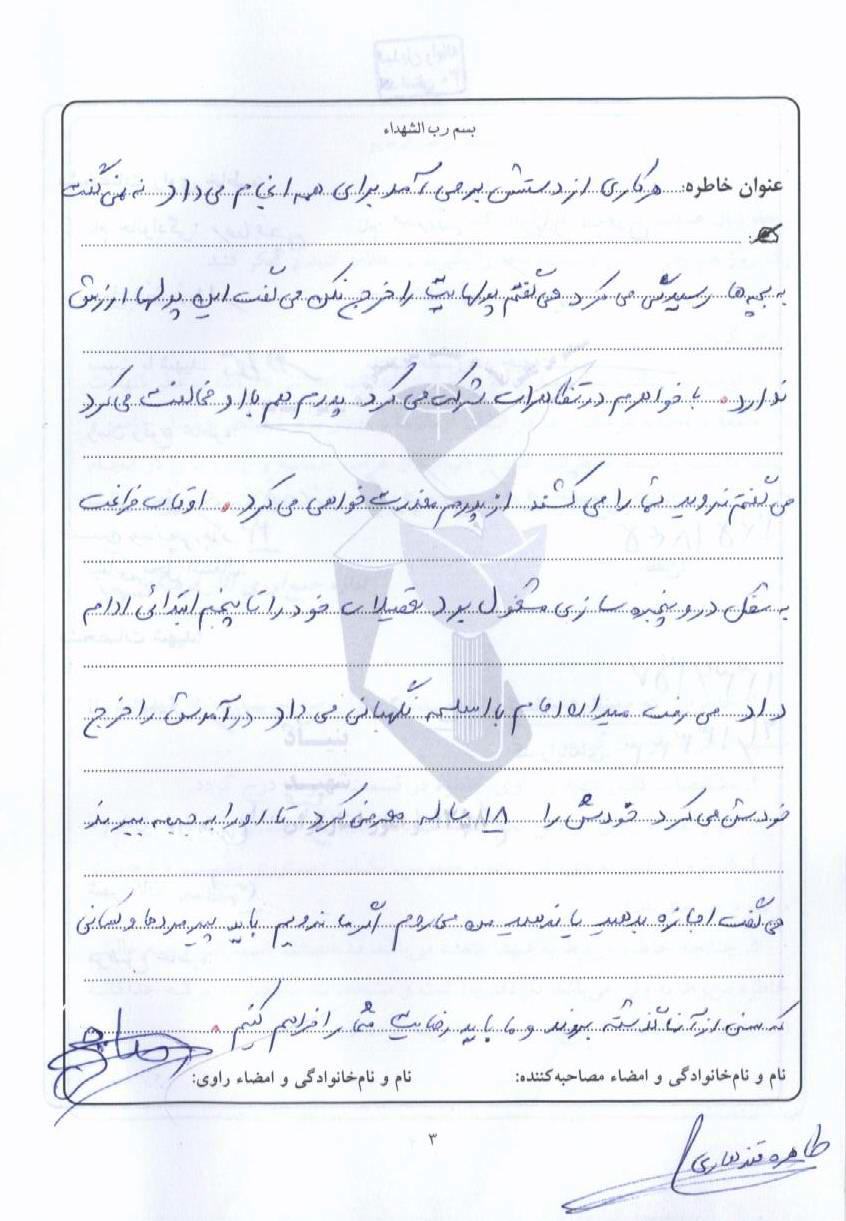 بسم رب الشهداء
عنوان خاطره: هر کاری از دستش بر می آمد برای همه انجام می داد نه نمی گفت
به بچه ها رسیدگی می کرد می گفتم پولهایت را خرج نکن می گفت این پولها ارزش
ندارد. با خواهرم در تظاهرات شرکت می کرد پدرم هم با او مخالفت می کرد
می گفتم نروید شما را می کشند از پدرم معذرت خواهی می کرد. اوقات فراغت
به شغل در و پنجره سازی مشغول بود تحصیلات خود را تا پنجم ابتدائی ادام
داد می رفت میدان امام با اسلحه نگهبانی می داد درآمدش را خرج
خودش می کرد خودش را ۱۸ ساله معرفی کرد تا او را به جبهه ببرند
می گفت اجازه بدهید یا ندهید من می روم اگر ما نرویم باید پیرمردها و کسانی
که سنی از آنها گذشته بروند و ما باید رضایت شما را فراهم کنیم.
نام و نام‌خانوادگی و امضاء مصاحبه‌کننده: نام و نام‌خانوادگی و امضاء راوی:
۳
طاهره قندهاری
بنیاد
شهید